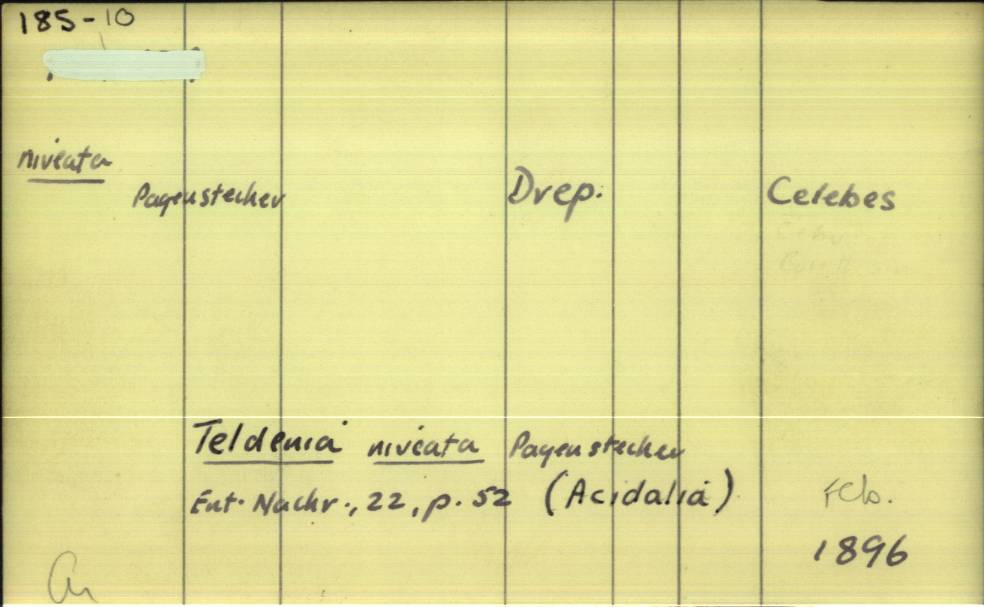 185-10
niveata
Pagenstecher Drep. Celebes
Teldenia niveata Pagenstecher
Ent. Nachr., 22, p. 52 (Acidalia) Feb.
1896